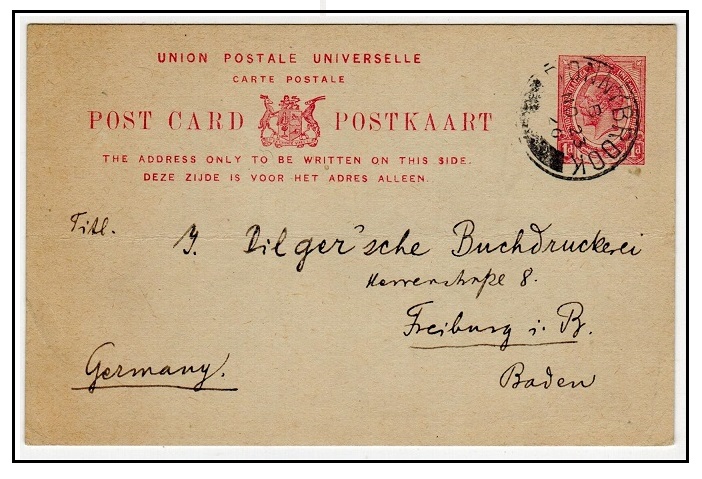 UNION POSTALE UNIVERSELLE
CARTE POSTALE
POST CARD POSTKAART
THE ADDRESS ONLY TO BE WRITTEN ON THIS SIDE.
DEZE ZIJDE IS VOOR HET ADRES ALLEEN.
Titl. J. Dilger'sche Buchdruckerei
Herrenstraße 8.
Freiburg i. B.
Baden
Germany.